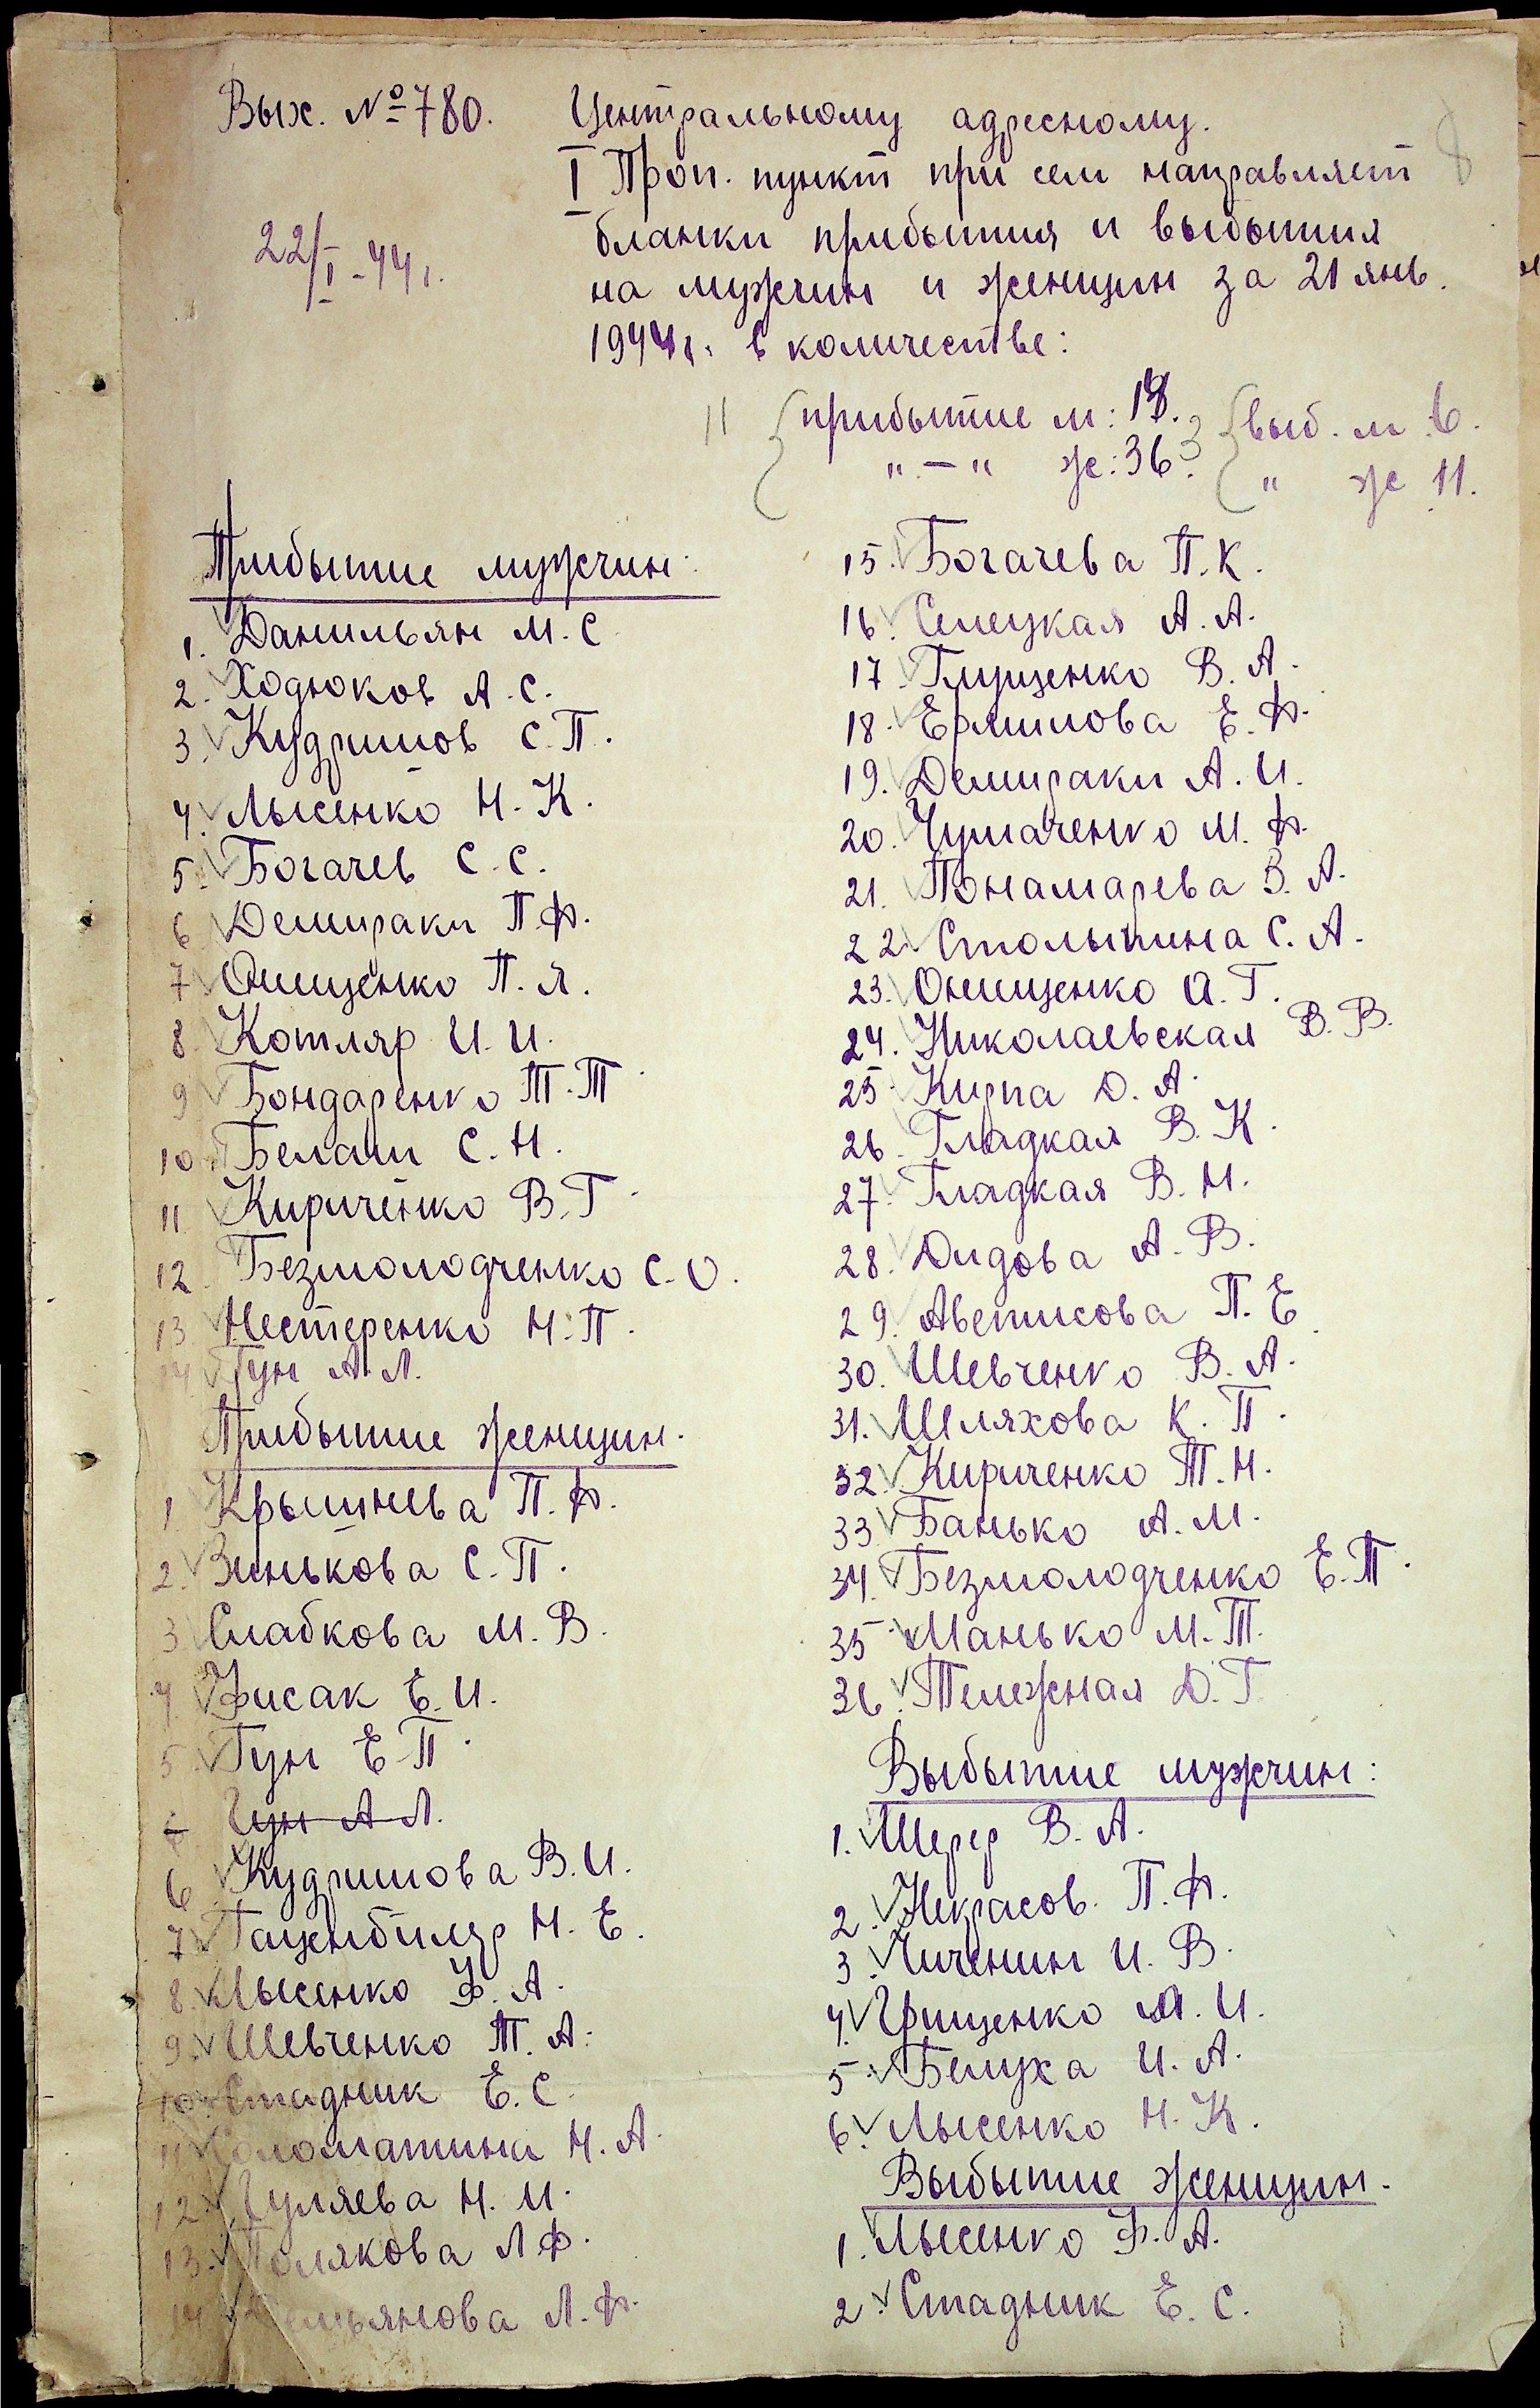 Вых. № 780.
Центральному адресному.
I Проп. пункт при сем направляет
22/I-44г.
бланки прибытия и выбытия
на мужчин и женщин за 21 янв.
1944г. в количестве:
11 { прибытие м: 13. { выб. м 6.
" — " ж: 36. " ж 11.
Прибытие мужчин:
1. Данильян М. С.
2. Ходюков А. С.
3. Кудримов С. П.
4. Лысенко Н. К.
5. Богачев С. С.
6 Демираки П. Ф.
7 Онищенко П. Я.
8 Котляр И. И.
9 Бондаренко Т. Т.
10 Белаш С. Н.
11 Кириченко В. Г.
12 Безмолодченко С. О.
13 Нестеренко Н. П.
14 Гун А. Л.
Прибытие женщин.
1 Крышнева П. Ф.
2. Зенькова С. П.
3 Слабкова М. В.
4 Фисак Е. И.
5 Гун Е. П.
6 Гун А. Л.
6 Кудримова В. И.
7 Гаценбиляр Н. Е.
8. Лысенко Ф. А.
9. Шевченко Т. А.
10 Стадник Е. С.
11 Соломатина Н. А.
12 Гуляева Н. И.
13. Полякова Л. Ф.
14 Л. Ф.
15. Богачева П. К.
16. Селецкая А. А.
17 Глущенко В. А.
18. Ермилова Е. Ф.
19. Демираки А. И.
20. Чумаченко М. Ф.
21. Понамарева В. А.
22. Столыпина С. А.
23. Онищенко А. Г.
24. Николаевская В. В.
25. Кирпа Д. А.
26. Гладкая В. К.
27. Гладкая В. Н.
28. Дидова А. В.
29. Аветисова П. Е.
30. Шевченко В. А.
31. Шляхова К. П.
32. Кириченко Т. Н.
33 Банько А. М.
34. Безмолодченко Е. П.
35 Манько М. Т.
36. Тележная Д. Г.
Выбытие мужчин:
1. Шерер В. А.
2. Некрасов. П. Ф.
3. Чиченин И. В.
4. Грищенко М. И.
5. Белуха И. А.
6. Лысенко Н. К.
Выбытие женщин.
1. Лысенко Ф. А.
2. Стадник Е. С.